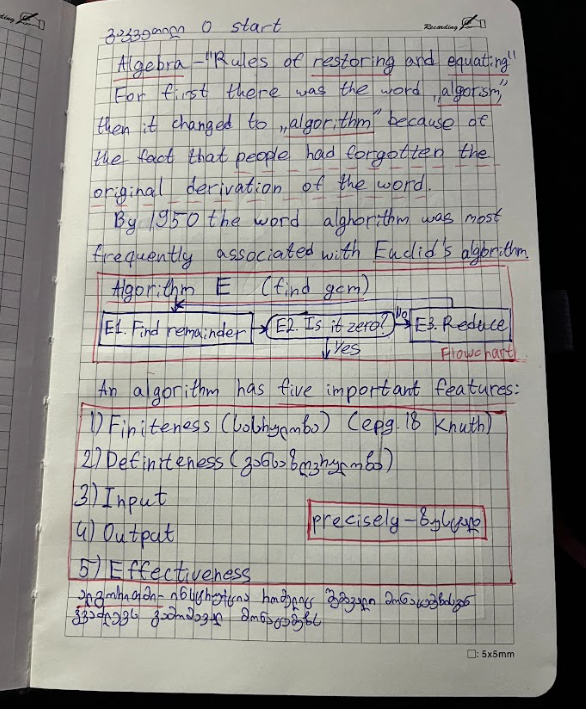 გაკვეთილი 0 start
Recording
Algebra - "Rules of restoring and equating"
For first there was the word „algorism,"
then it changed to „algorithm" because of
the fact that people had forgotten the
original derivation of the word.
By 1950 the word alghorithm was most
frequently associated with Euclid's algorithm.
Algorithm E (find gcm)
E1. Find remainder E2. Is it zero? No E3. Reduce
Yes
Flowchart
An algorithm has five important features:
1) Finiteness (სასრულობა) (epg.18 Knuth)
2) Definiteness (განსაზღვრულობა)
3) Input
precisely - ზუსტად
4) Output
5) Effectiveness
ალგორითმი - ინსტრუქცია რომელიც შემავალი მონაცემებისგან
გვაძლევს გამომავალ მონაცემებს
□: 5x5mm